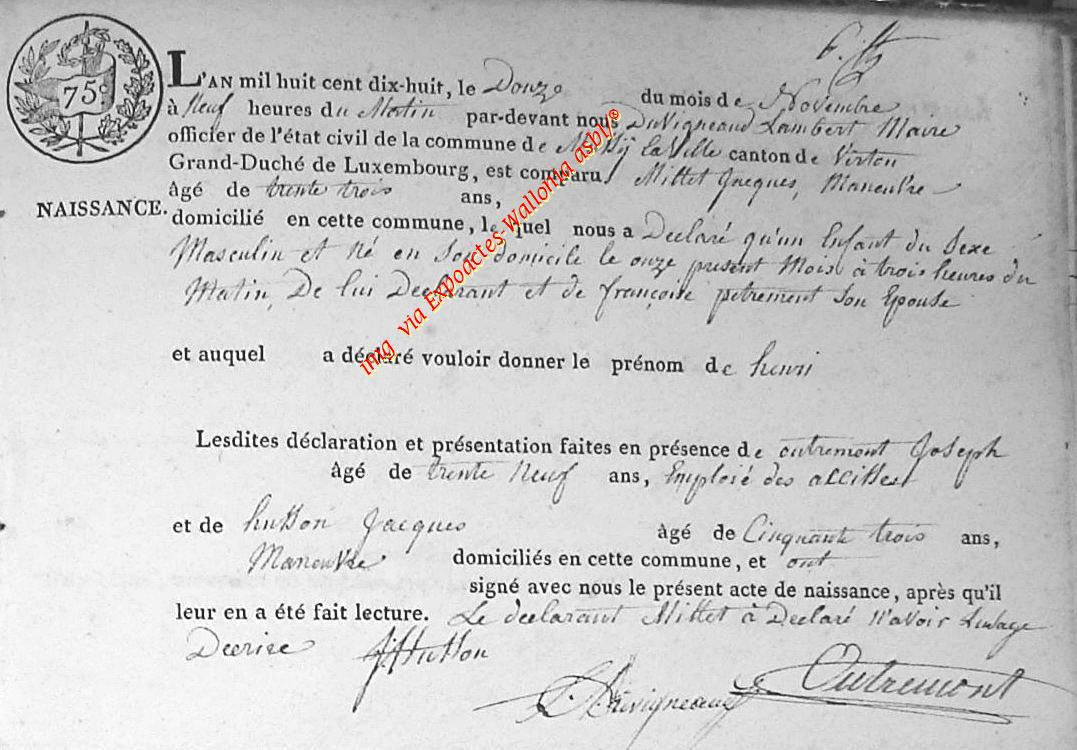 75c
L'AN mil huit cent dix-huit, le Douze du mois de Novembre
à Neuf heures du Matin par-devant nous DuVigneaud Lambert Maire
officier de l'état civil de la commune de la Ville canton de Virton
Grand-Duché de Luxembourg, est comparu Millet Jacques, Maneuvre
âgé de trente trois ans,
NAISSANCE.
domicilié en cette commune, lequel nous a Declaré qu'un Enfant du Sexe
Masculin et Né en Son domicile le onze present Mois à trois heures du
Matin, De lui Declarant et de françoise petrement Son Epouse
et auquel a déclaré vouloir donner le prénom de henri
Lesdites déclaration et présentation faites en présence de outremont Joseph
âgé de trente Neuf ans, Emploié des accises
et de hutton Jacques âgé de Cinquante trois ans,
Maneuvre domiciliés en cette commune, et ont
signé avec nous le présent acte de naissance, après qu'il
leur en a été fait lecture. Le declarant Millet à Declaré N'avoir Lusage
Decrire JHutton
Duvigneaud Outremont
img via Expoactes-Wallonia asbl ©